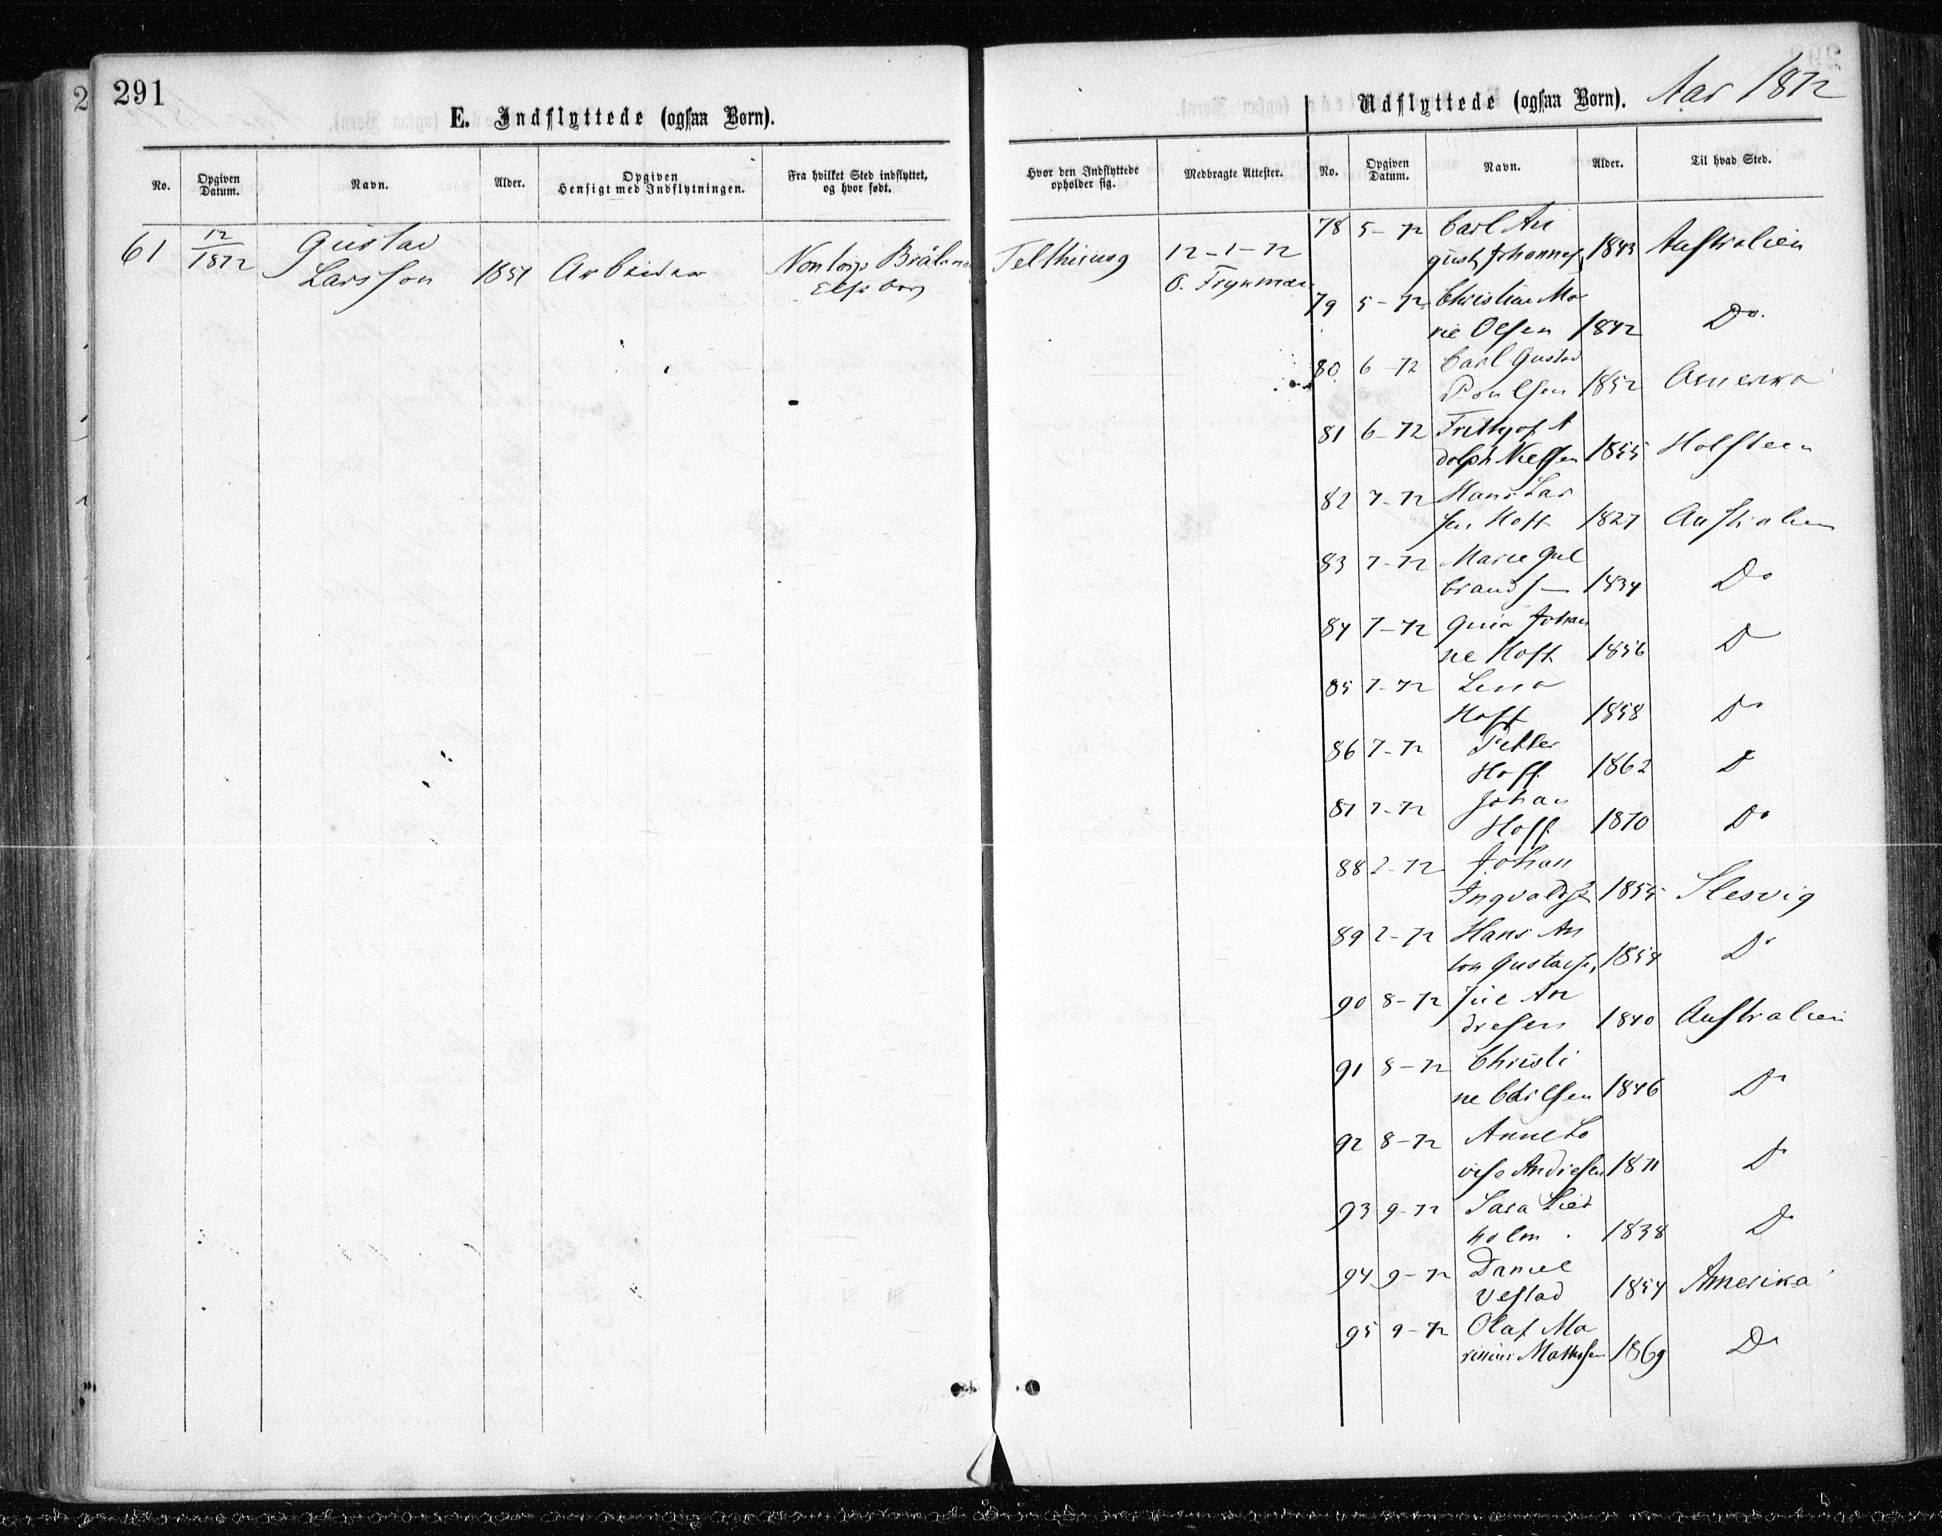 291
E. Indflyttede (ogsaa Børn).
No. Opgiven Datum. Navn. Alder. Opgiven Hensigt med Indflytningen. Fra hvilket Sted indflyttet, og hvor født.
61 12/1872 Gustav
Larsson 1851 Arbeider
Hvor den Indflyttede opholder sig. Medbragte Attester.
12-1-72
Udflyttede (ogsaa Børn). Aar 1872
No. Opgiven Datum. Navn. Alder. Til hvad Sted.
78 5-72 Carl Au
gust Johannes 1843 Australien
79 5-72 Christine Ma
rie Olsen 1842 Do.
80 6-72 Carl Gustav
Poulsen 1852 Amerika
81 6-72 Frithjof A
dolph Nielsen 1855 Holsteen
82 7-72 Hans Lar
sen Hoff 1827 Australien
83 7-72 Marie Gul
brands 1834 Do
84 7-72 Johan
ne Hoff 1856 D
85 7-72 Lena
Hoff 1858 Do
86 7-72 Petter
Hoff 1862 D
87 7-72 Johan
Hoff 1870 Do
88 2-72 Johan
Ingvalds 1855 Slesvig
89 2-72 Hans An
ton Gustavs 1854 Do
90 8-72 An
dresen 1840 Australien
91 8-72 Christi
ne 1846 Do
92 8-72 Anne Lo
vise Andresen 1871 Do
93 9-72 Sara Lied
holm. 1838 Do
94 9-72 Daniel
Vestad 1854 Amerika
95 9-72 Olaf Ma
rinius Mathisen 1869 Do